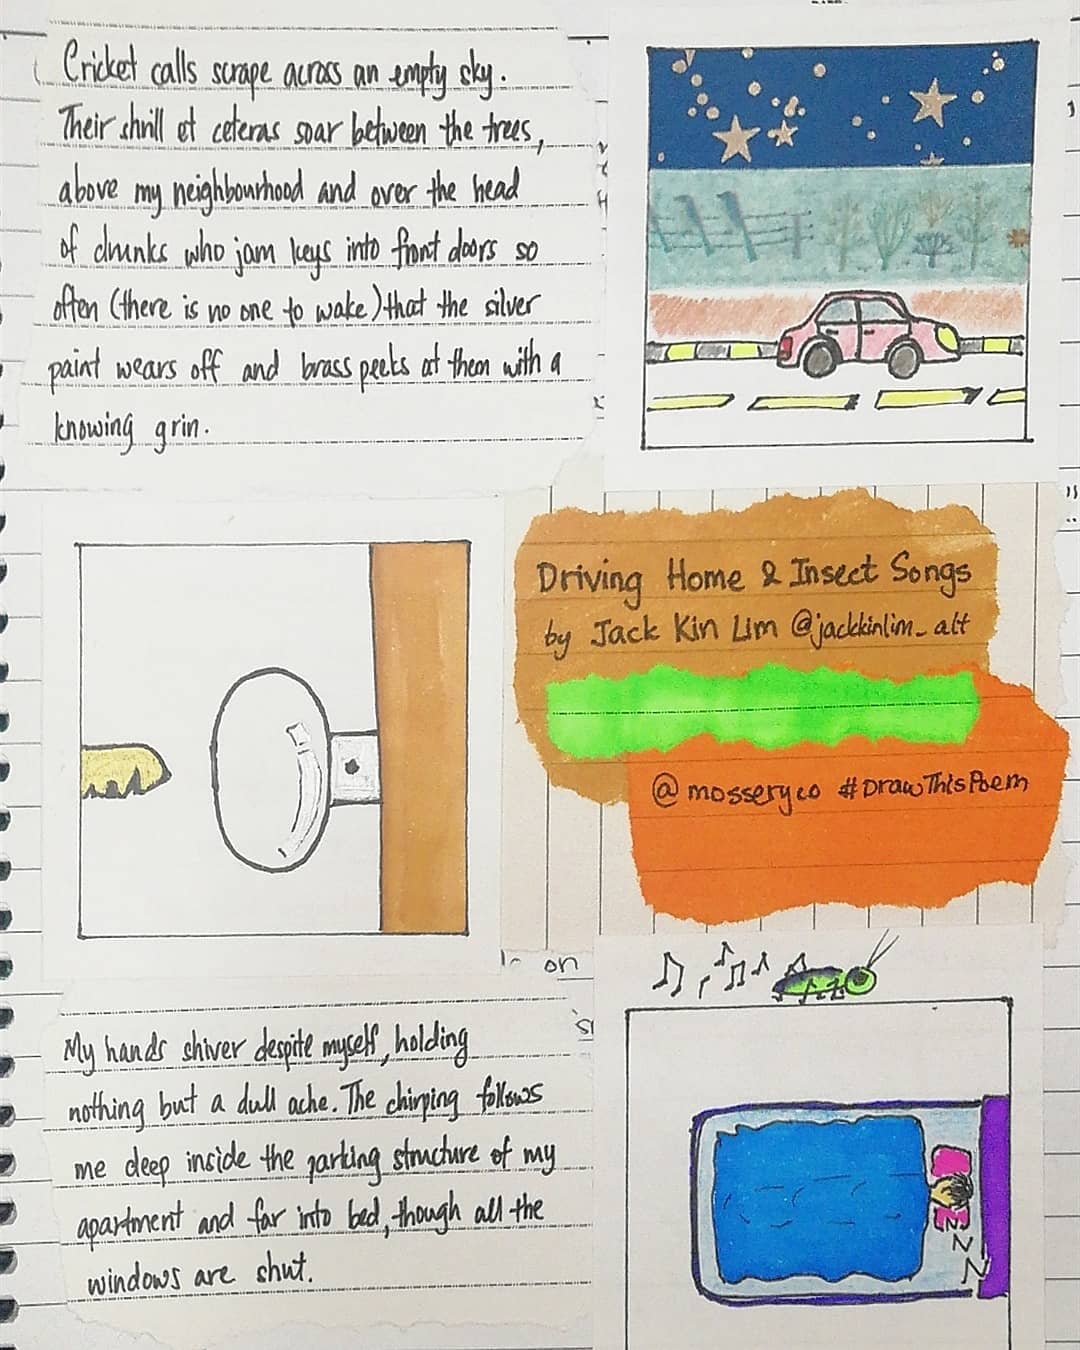 Cricket calls scrape across an empty sky.
Their shrill et ceteras soar between the trees,
above my neighbourhood and over the head
of drunks who jam keys into front doors so
often (there is no one to wake) that the silver
paint wears off and brass peeks at them with a
knowing grin.
Driving Home & Insect Songs
by Jack Kin Lim @jackkinlim_alt
@mosseryco #DrawThisPoem
on
My hands shiver despite myself, holding
nothing but a dull ache. The chirping follows
me deep inside the parking structure of my
apartment and far into bed, though all the
windows are shut.
N
N
N